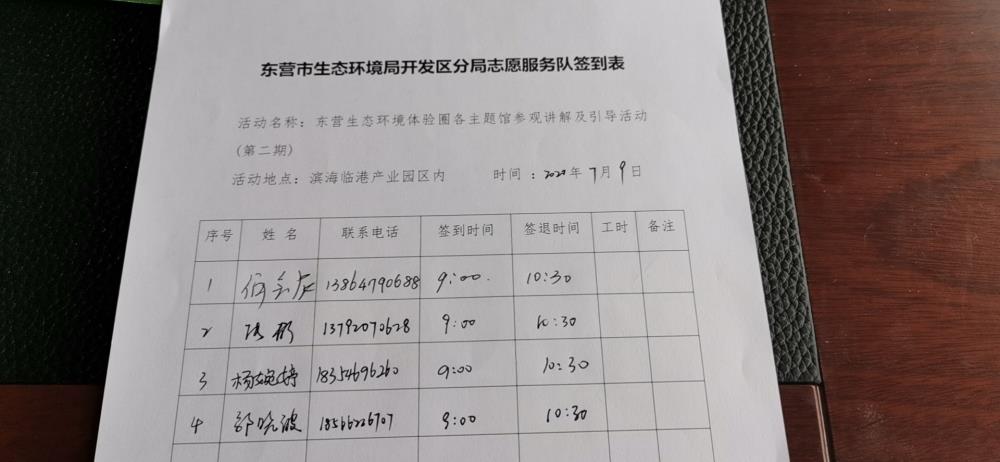 东营市生态环境局开发区分局志愿服务队签到表
活动名称：东营生态环境体验圈各主题馆参观讲解及引导活动
(第二期)
活动地点：滨海临港产业园区内 时间：年7月9日
序号 姓名 联系电话 签到时间 签退时间 工时 备注
1 13864790688 9:00 10:30
2 13792070628 9:00 10:30
3 杨婉婷 18354696260 9:00 10:30
4 邵晓波 18566226707 9:00 10:30